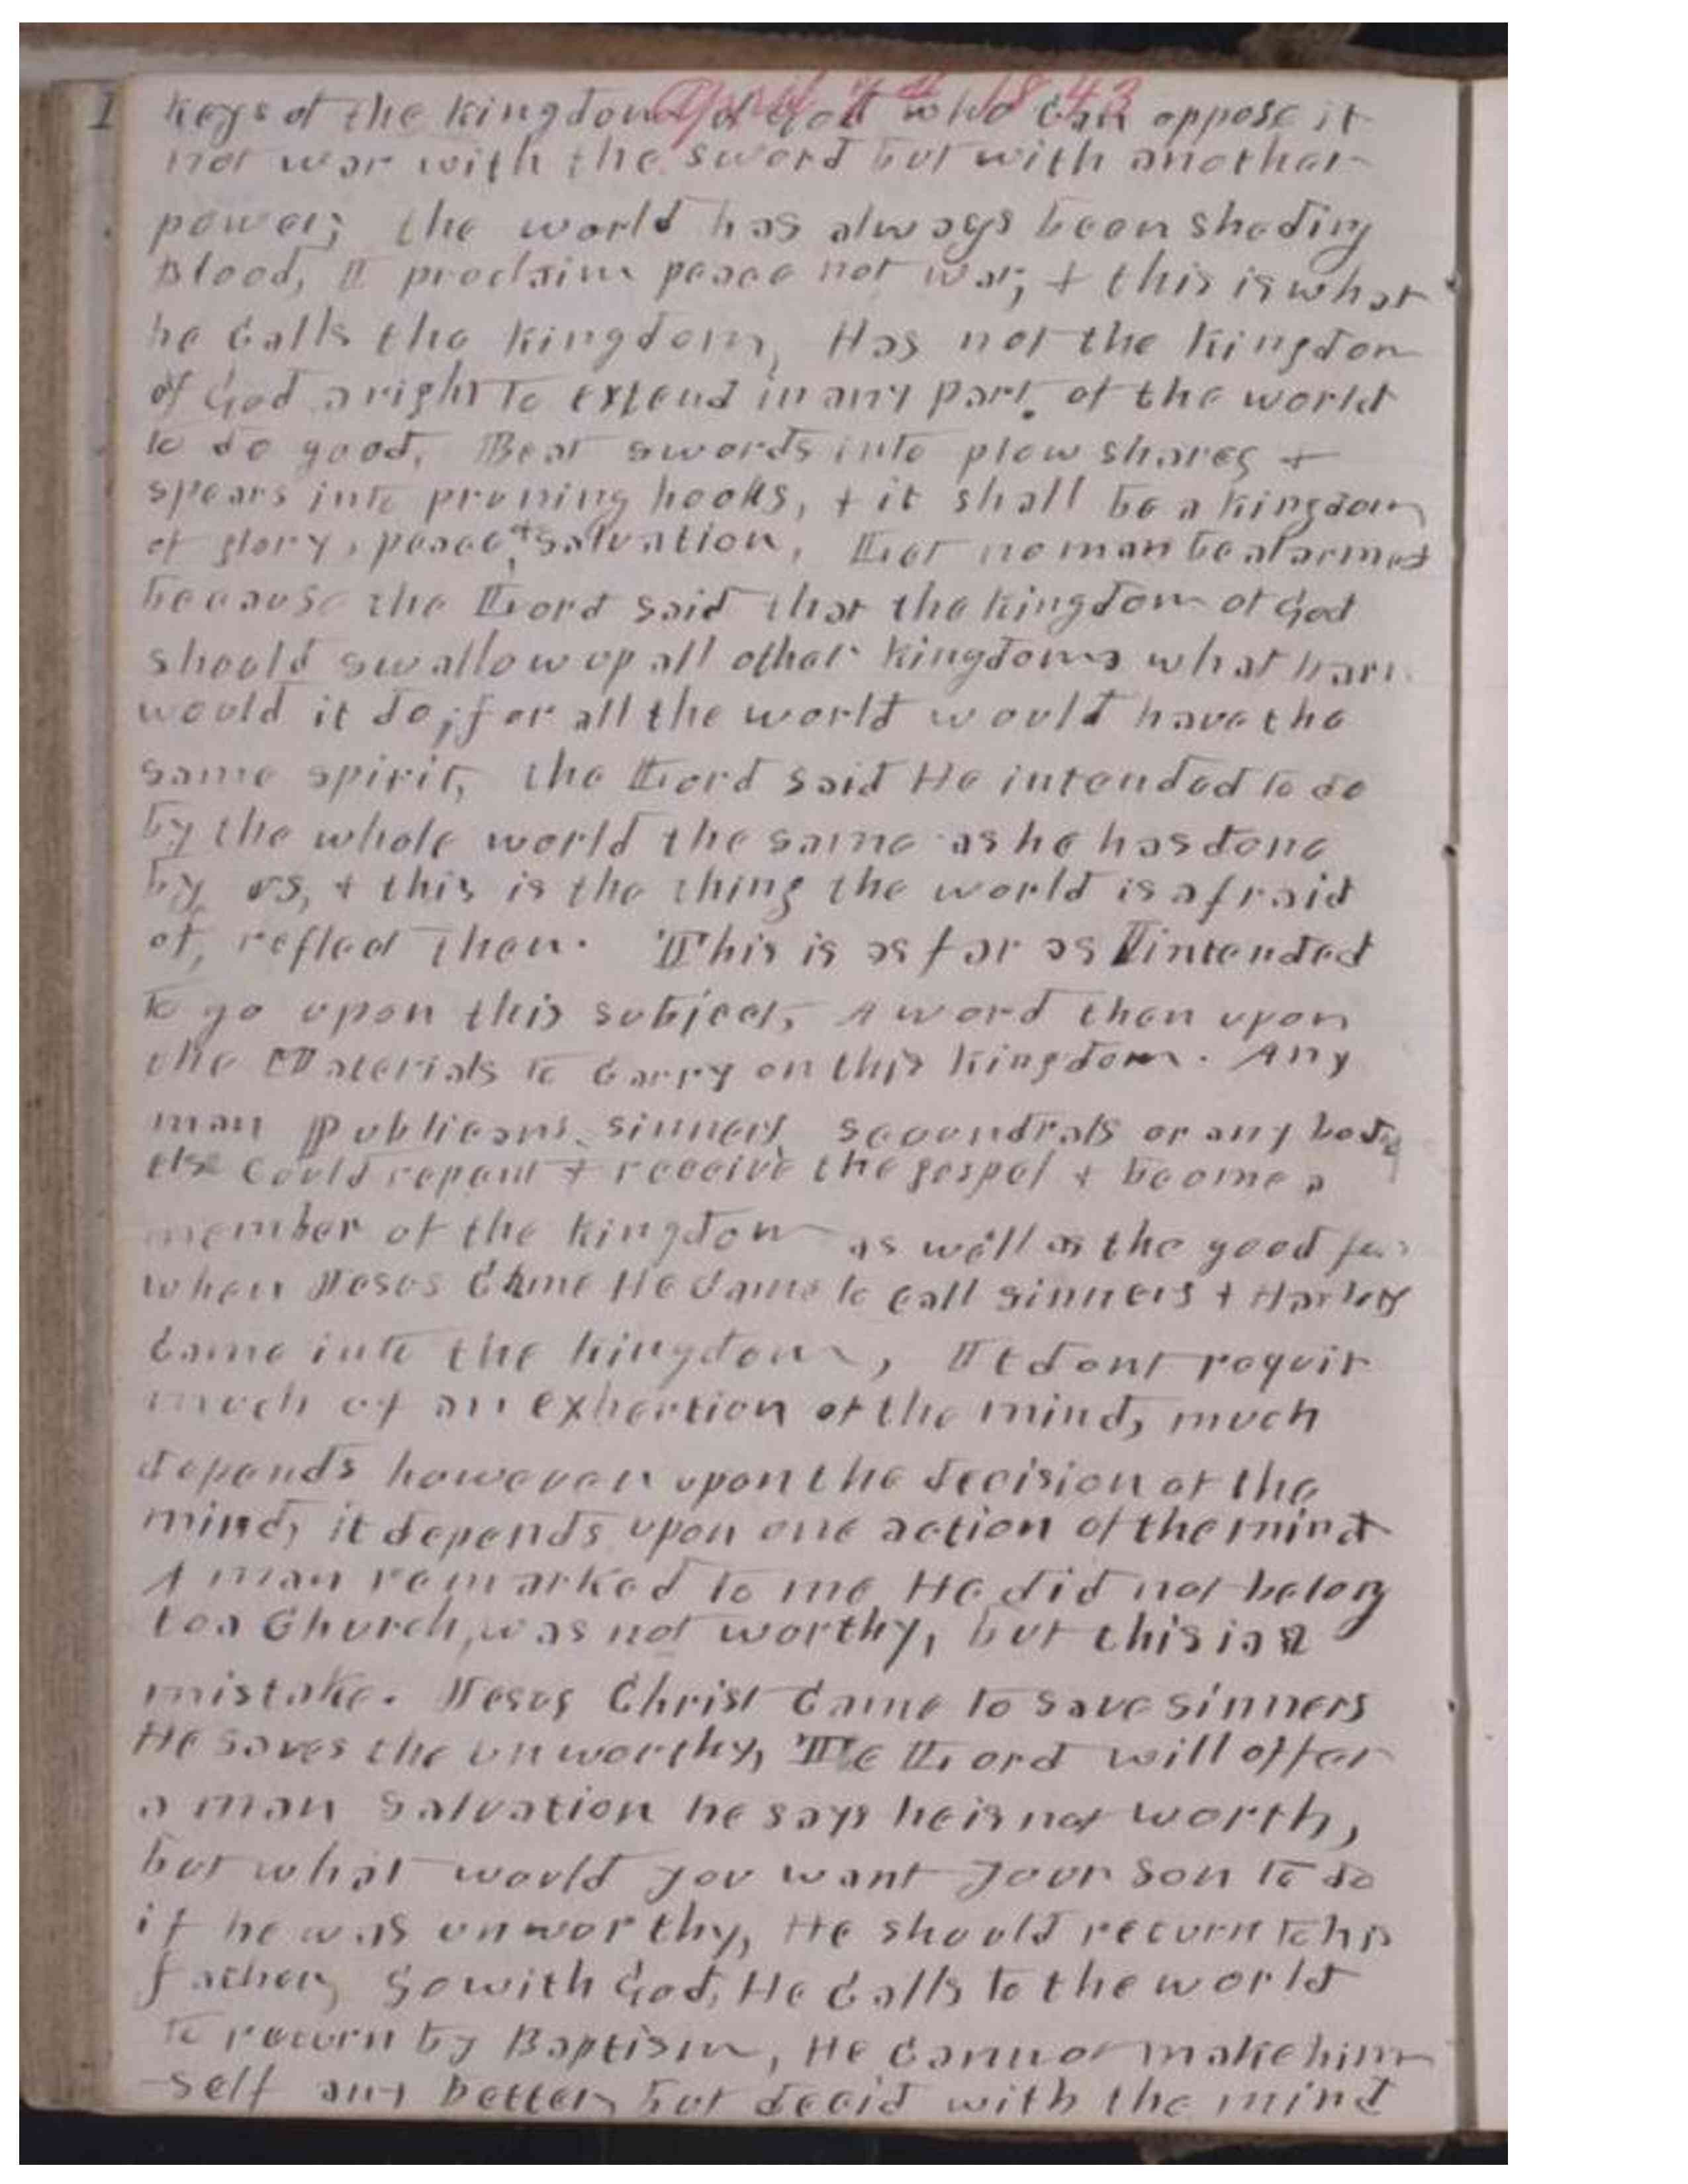 April 7th 1843
I keys of the kingdom of God who can oppose it
not war with the sword but with another
power; the world has always been sheding
Blood, I proclaim peace not war; + this is what
he calls the kingdom, Has not the kingdom
of God a right to extend in any part of the world
to do good. Beat swords into plow shares +
spears into pruning hooks, + it shall be a kingdom
of glory, peace, + salvation, Let no man be alarmed
because the Lord said that the kingdom of God
should swallow up all other kingdoms what harm
would it do, for all the world would have the
same spirit, the Lord said He intended to do
by the whole world the same as he has done
by us, + this is the thing the world is afraid
of, reflect then. This is as far as I intended
to go upon this subject, A word then upon
the Materials to carry on this kingdom. Any
man Publicans, sinners scoundrals or any body
else could repent + receive the gospel + become a
member of the kingdom as well as the good for
when Jesus came He came to call sinners + Harlots
came into the kingdom, It dont requir
much of an exhertion of the mind, much
depends however upon the decision of the
mind, it depends upon one action of the mind
A man remarked to me He did not belong
to a Church, was not worthy, but this is a
mistake. Jesus Christ came to save sinners
He saves the unworthy, The Lord will offer
a man salvation he says he is not worth,
but what would you want your son to do
if he was unworthy, He should return to his
father, so with God, He calls to the world
to return by Baptism, He cannot make him
self any better, but decid with the mind